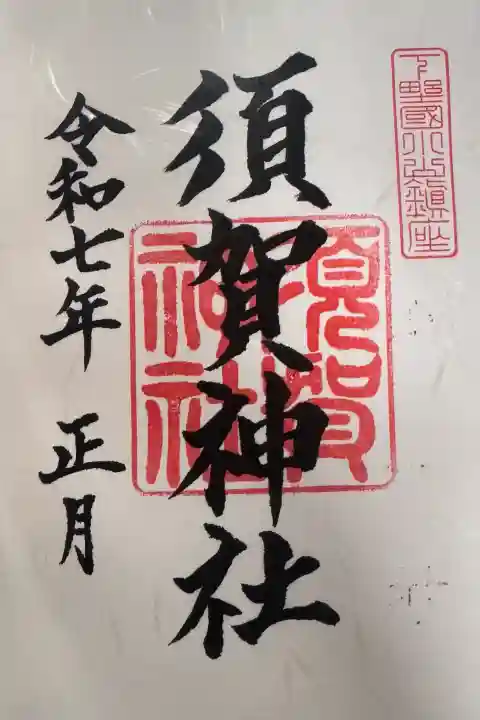 下野國小山鎮坐
須賀神社
須賀神社
令和七年 正月